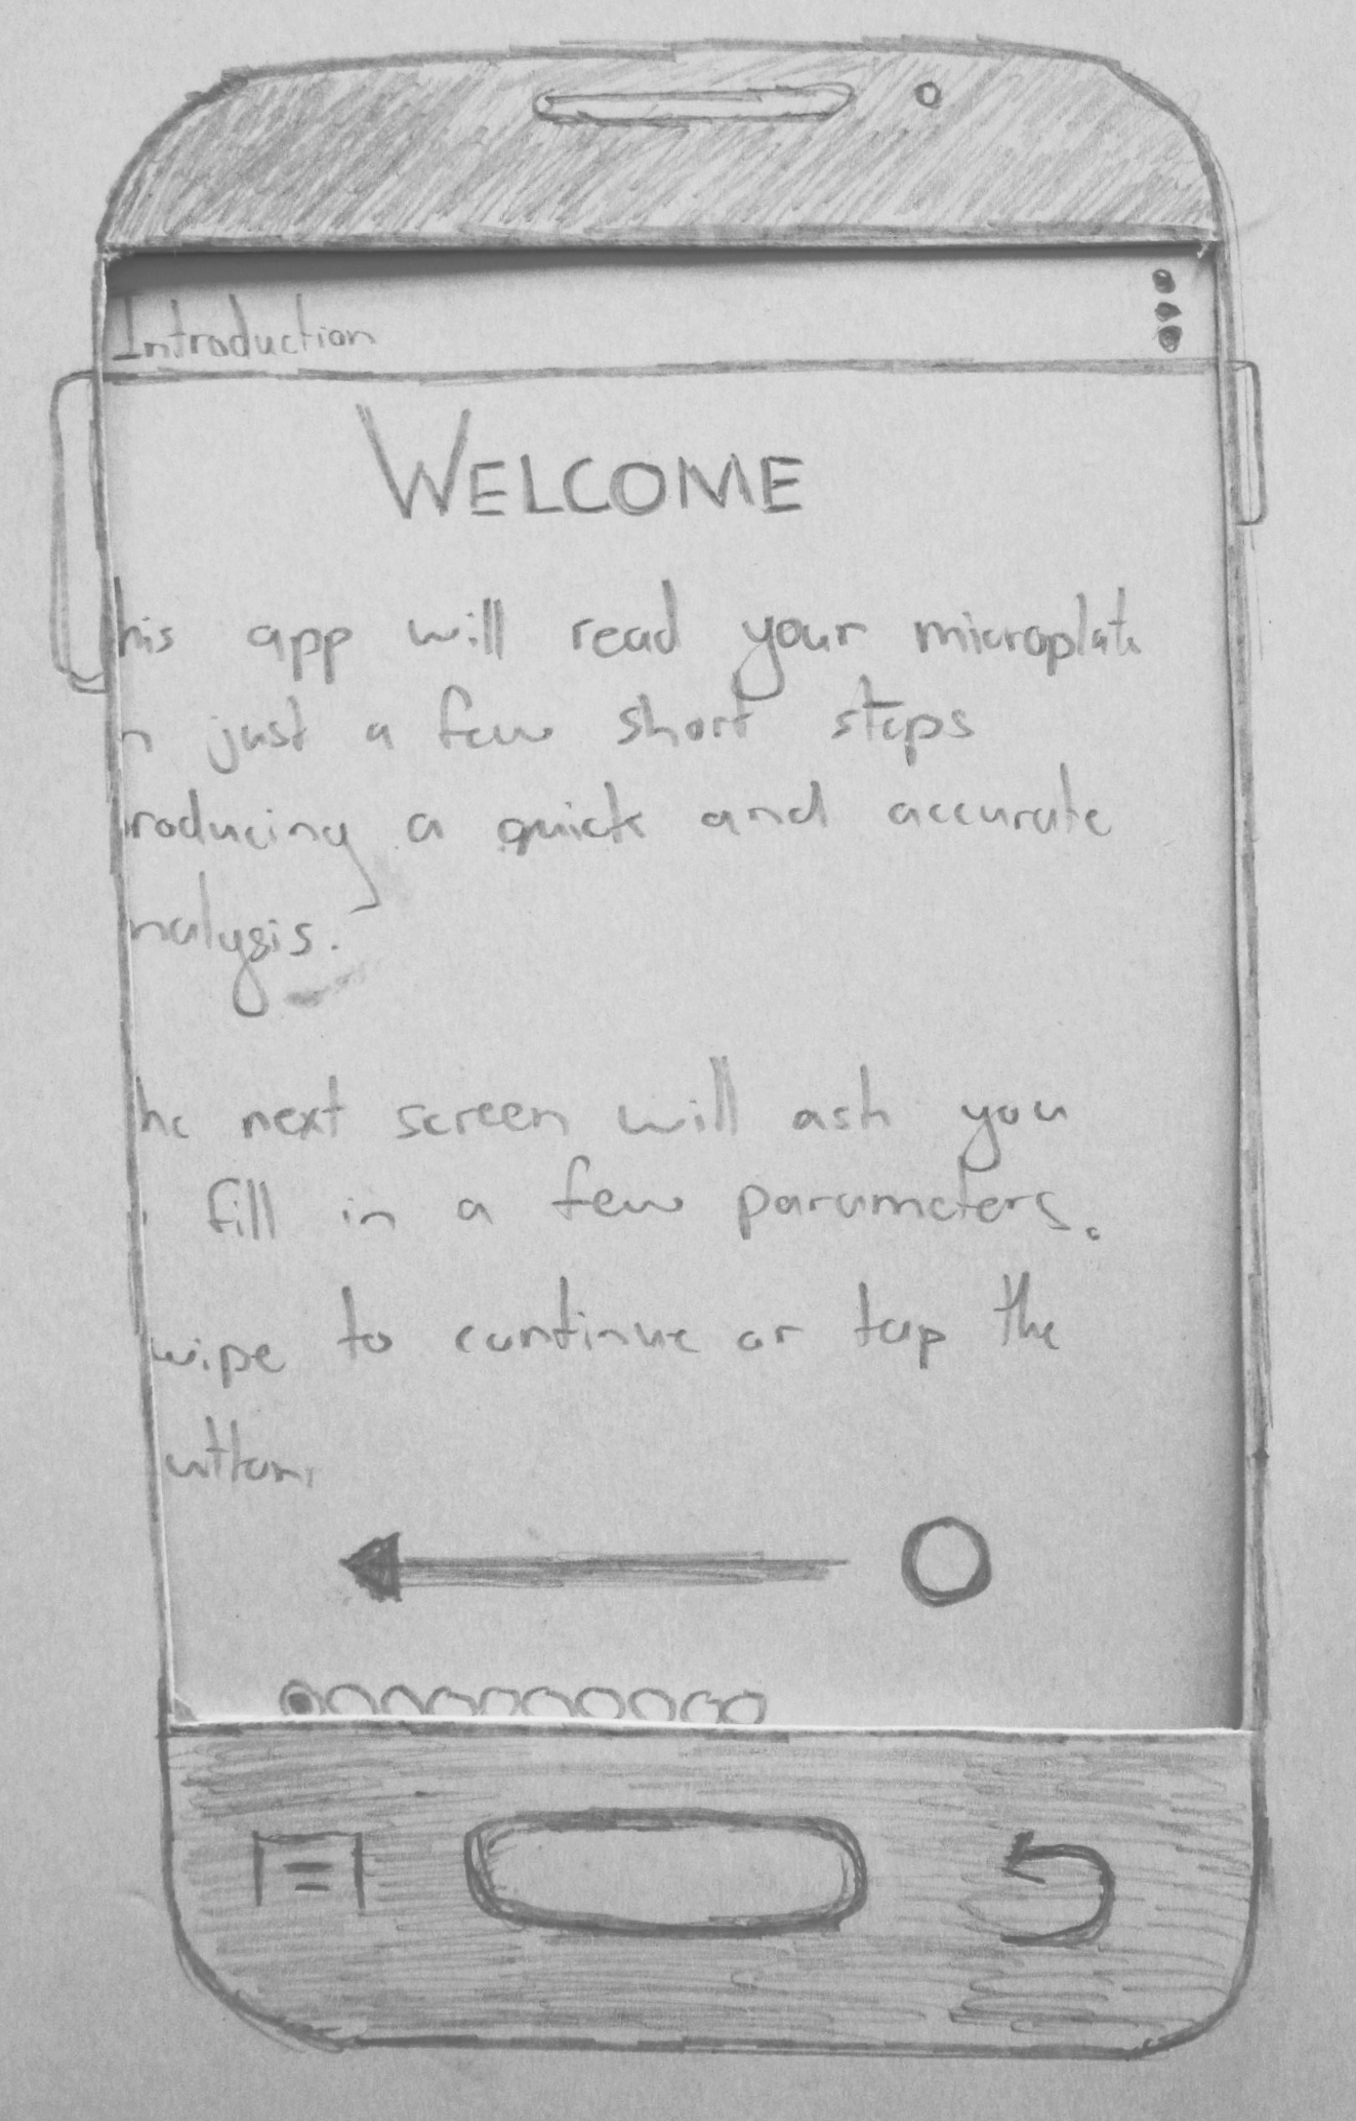 Introduction
WELCOME
his app will read your microplate
n just a few short steps
roducing a quick and accurate
nalysis.
he next screen will ask you
fill in a few parameters.
wipe to continue or tap the
utton.